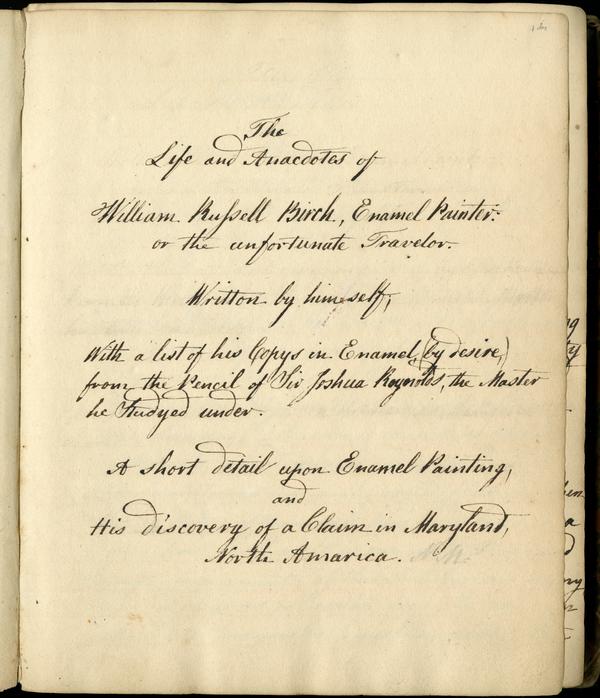 The
Life and Anacdotes of
William Russell Birch, Enamel Painter.
or the unfortunate Travelor.
Written by himself,
With a list of his Copys in Enamel, (by desire,)
from the Pencil of Sir Joshua Reynolds, the Master
he Studyed under.
A short detail upon Enamel Painting,
and
His discovery of a Claim in Maryland,
North Amarica.